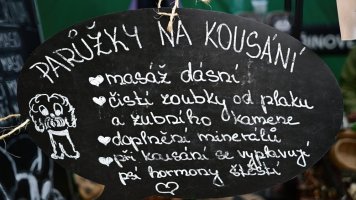 PARŮŽKY NA KOUSÁNÍ
masáž dásní
čistí zoubky od plaku
a zubního kamene
doplnění minerálů
při kousání se vyplavují
psí hormony štěstí